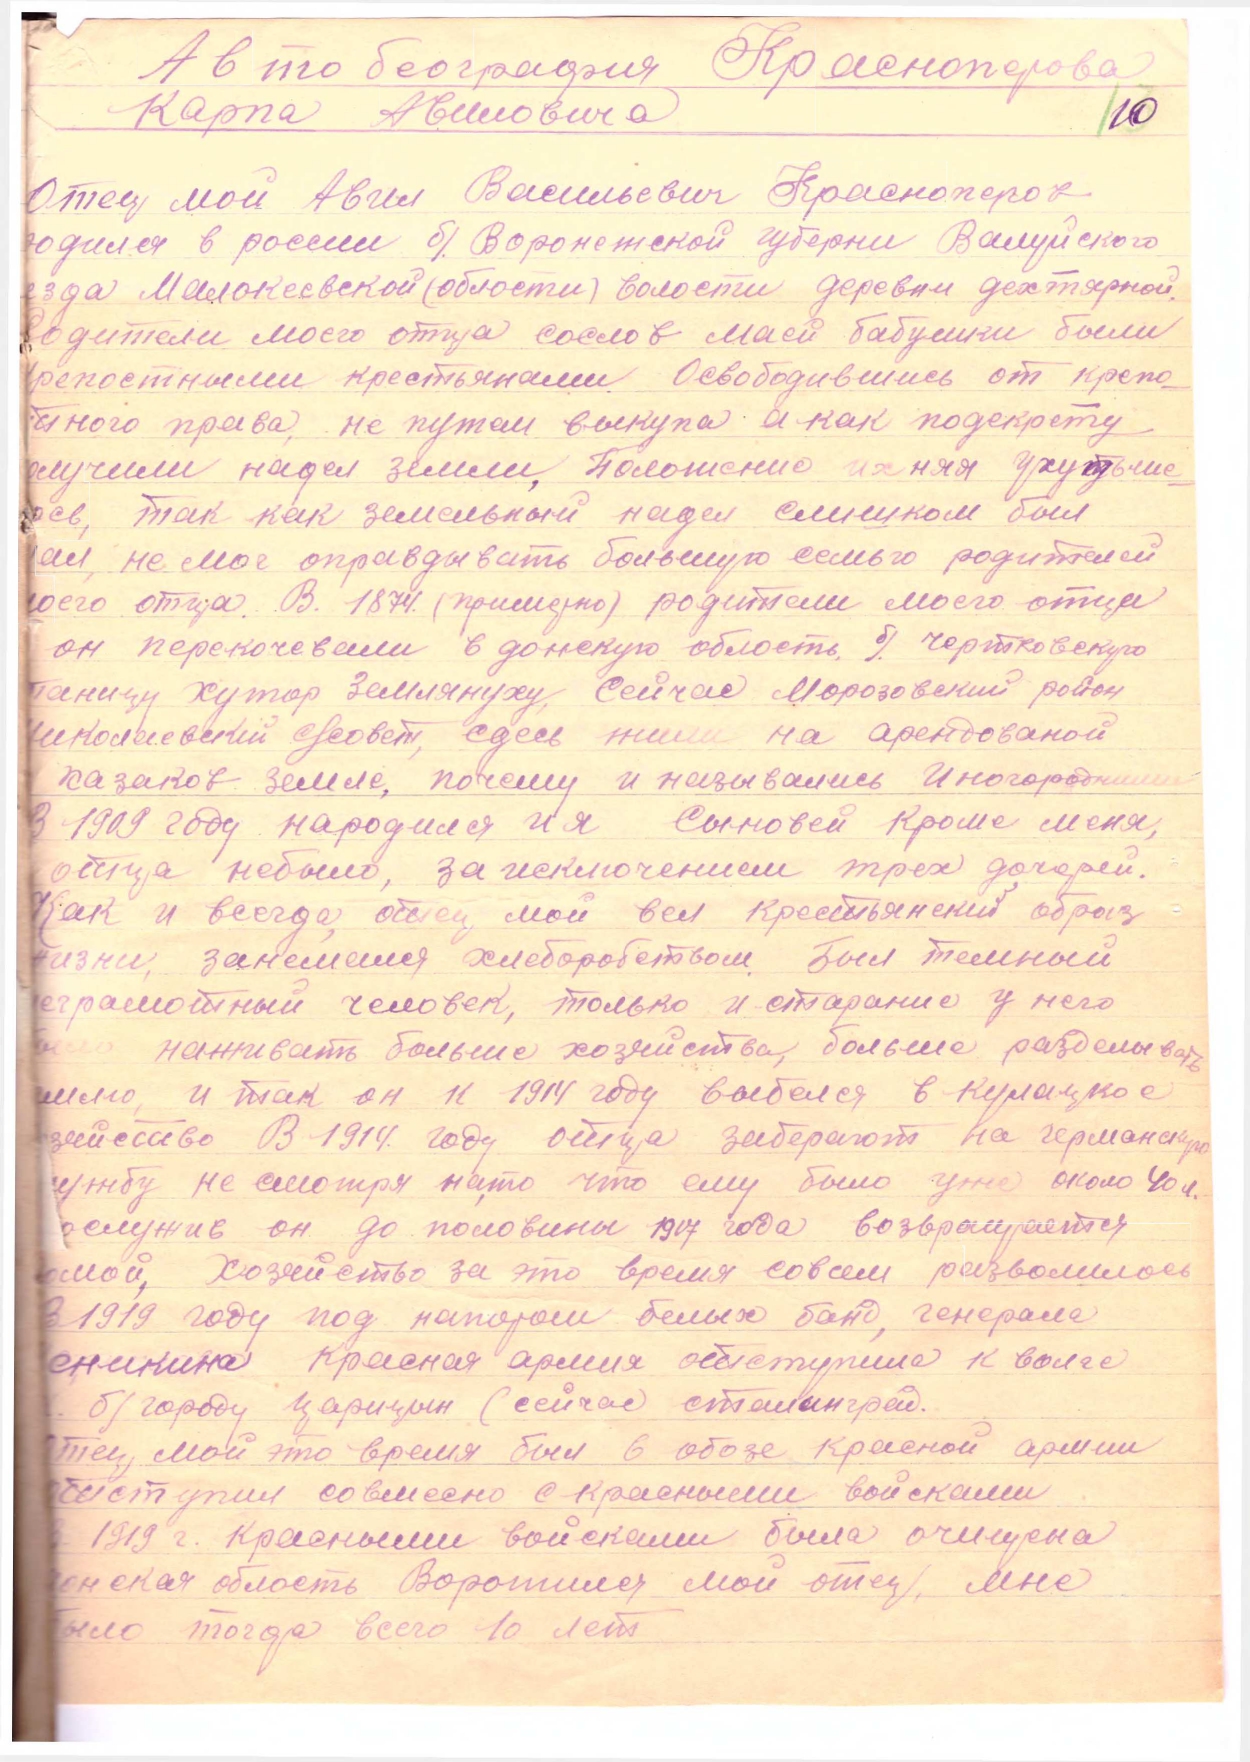 Автобеография Красноперова
Карпа Авиловича
10
Отец мой Авил Васильевич Красноперов
родился в россии б/. Воронежской губерни Валуйского
езда Малокеевской (области) волости деревни дехтярной.
Родители моего отца сослов маей бабушки были
репостными крестьянами Освободившись от крепо-
тного права, не путем выкупа а как подекрету
лучили надел земли, Положение ихняя ухутьше-
ось, так как земельный надел слишком был
ал, не мог оправдывать большую семью родителей
оего отца. В. 1874. (примерно) родители моего отца
он перекочевали в донскую область. б/. чертковскую
таницу хутор Землянуху, Сейчас Морозовский район
иколаевский с/совет, сдесь жили на арендованой
казаков земле, почему и назывались Иногородними
В 1909 году народился и я Сыновей кроме меня,
отца небыло, за исключением трех дочерей.
Как и всегда, отец мой вел крестьянский образ
изни, занемался хлеборобством. Был темный
еграмотный человек, только и старание у него
было наживать больше хозяйства, больше разделывать
млю, и так он к 1914 году выбелся в кулацкое
зяйство В 1914. году отца заберают на германскую
ужбу не смотря нато что ему было уже около 40 л.
ослужив он до половины 1917 года возвращается
омой, Хозяйство за это время совсем развалилось
В 1919 году под напором белых банд, генерала
еникина красная армия отступила к волге
б/ городу царицын (сейчас сталинград.
Отец мой это время был в обозе красной армии
отступил совмесно с красными войсками
1919 г. красными войсками была очищена
онская область Воротился мой отец, мне
ыло тогда всего 10 лет